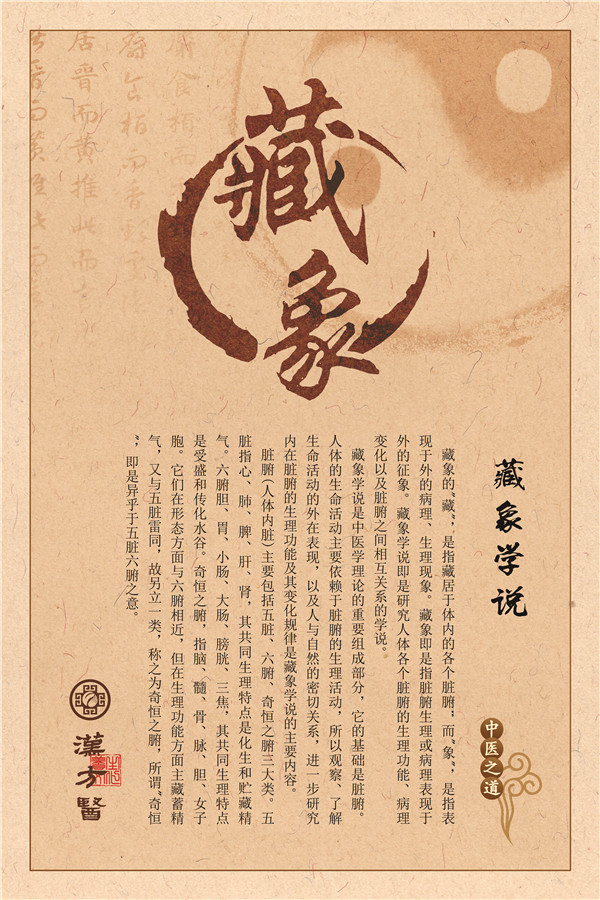 藏象
藏象学说
中医之道
藏象的"藏"，是指藏居于体内的各个脏腑；而"象"，是指表
现于外的病理、生理现象。藏象即是指脏腑生理或病理表现于
外的征象。藏象学说即是研究人体各个脏腑的生理功能、病理
变化以及脏腑之间相互关系的学说。
藏象学说是中医学理论的重要组成部分，它的基础是脏腑。
人体的生命活动主要依赖于脏腑的生理活动，所以观察、了解
生命活动的外在表现，以及人与自然的密切关系，进一步研究
内在脏腑的生理功能及其变化规律是藏象学说的主要内容。
脏腑(人体内脏)主要包括五脏、六腑、奇恒之腑三大类。五
脏指心、肺、脾、肝、肾，其共同生理特点是化生和贮藏精
气。六腑胆、胃、小肠、大肠、膀胱、三焦，其共同生理特点
是受盛和传化水谷。奇恒之腑，指脑、髓、骨、脉、胆、女子
胞。它们在形态方面与六腑相近，但在生理功能方面主藏蓄精
气，又与五脏雷同，故另立一类，称之为奇恒之腑，所谓"奇恒
"，即是异乎于五脏六腑之意。
漢方醫